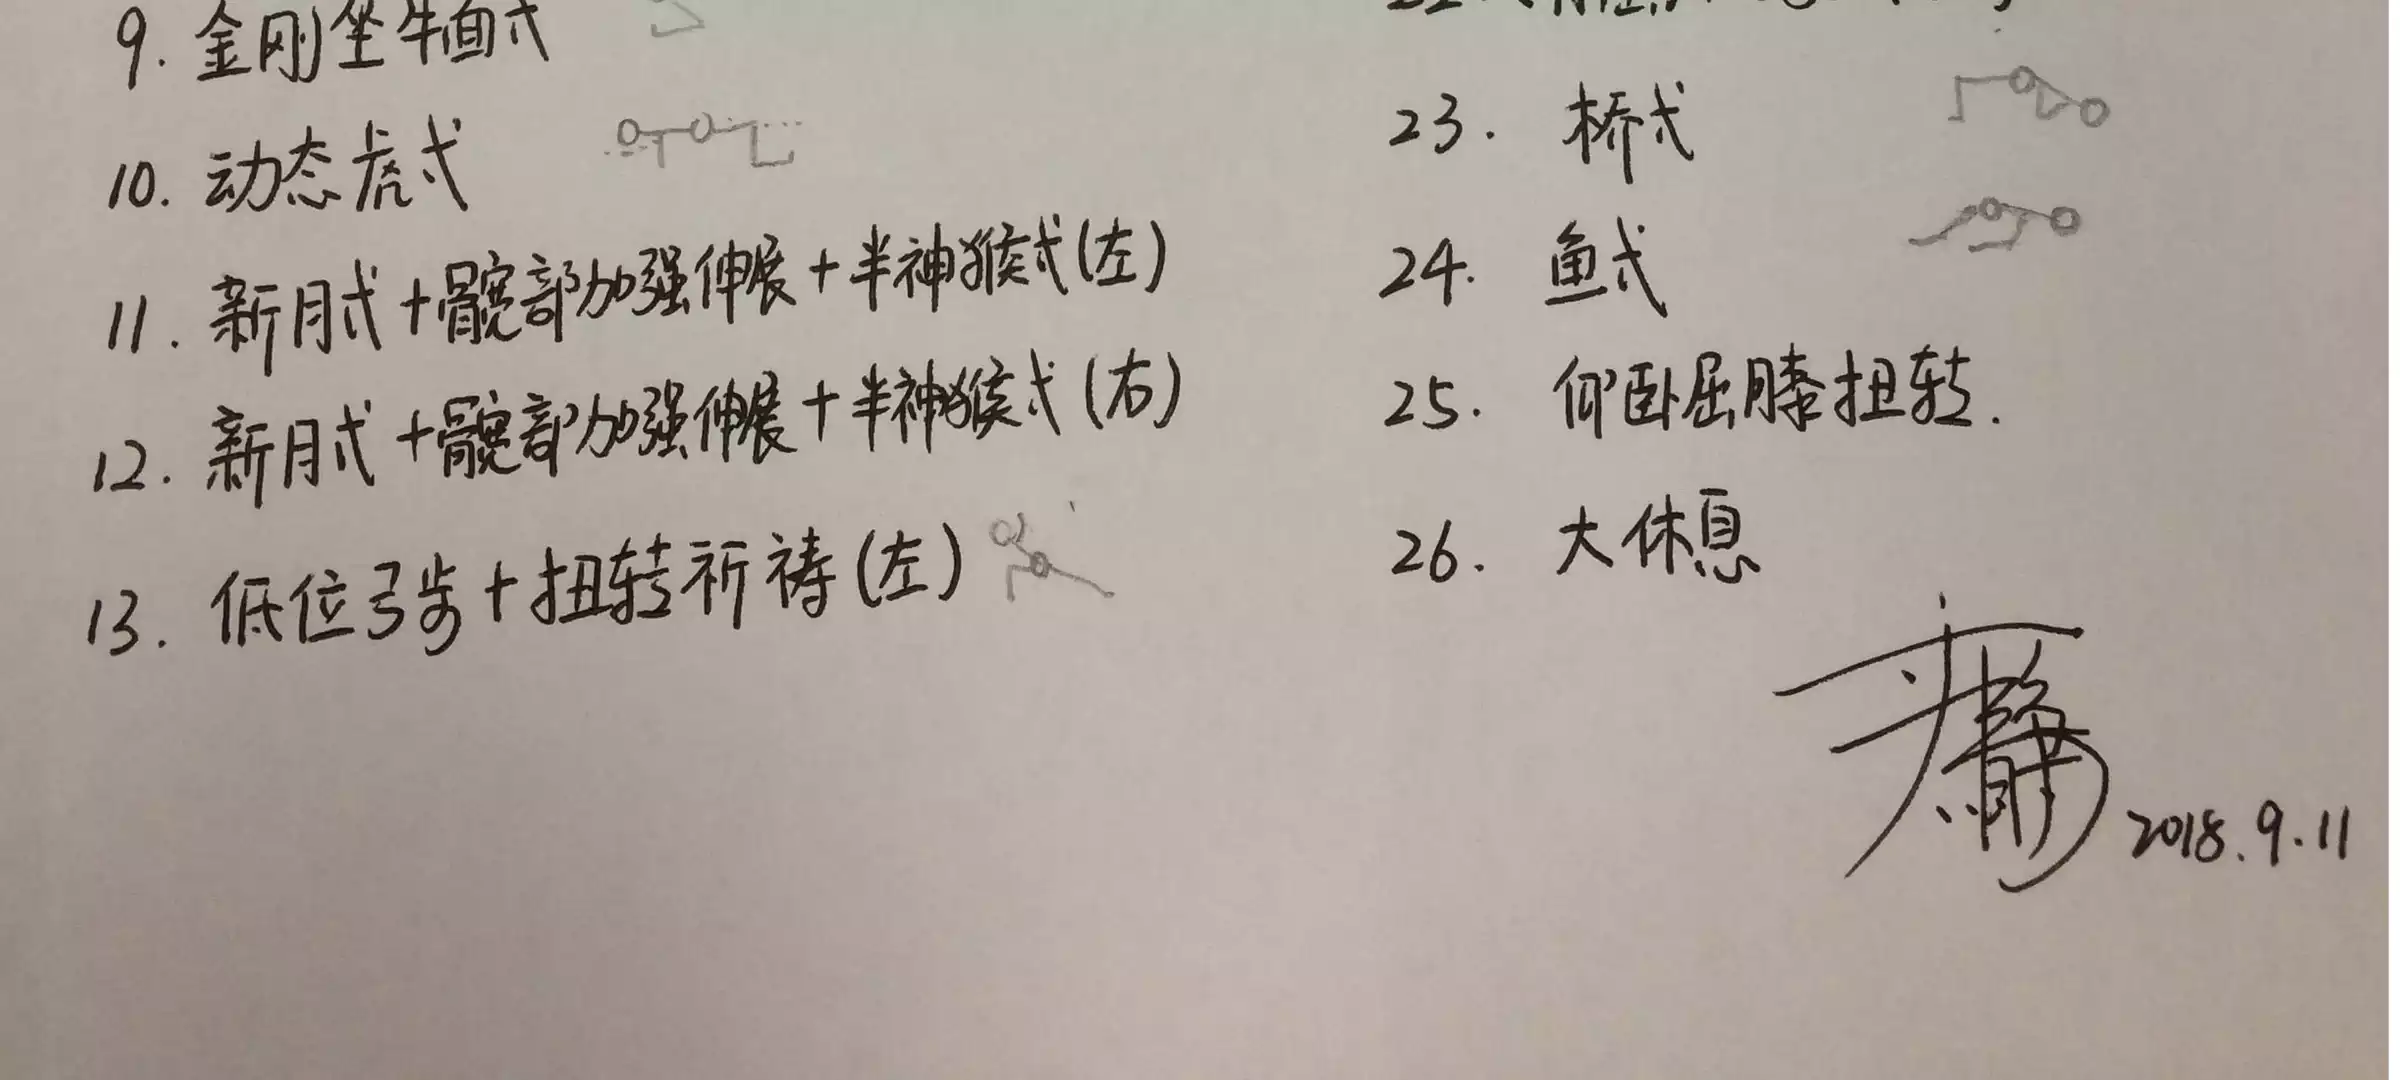 9. 金刚坐牛面式
10. 动态虎式
11. 新月式+髋部加强伸展+半神猴式(左)
12. 新月式+髋部加强伸展+半神猴式(右)
13. 低位弓步+扭转祈祷(左)
23. 桥式
24. 鱼式
25. 仰卧屈膝扭转.
26. 大休息
2018.9.11